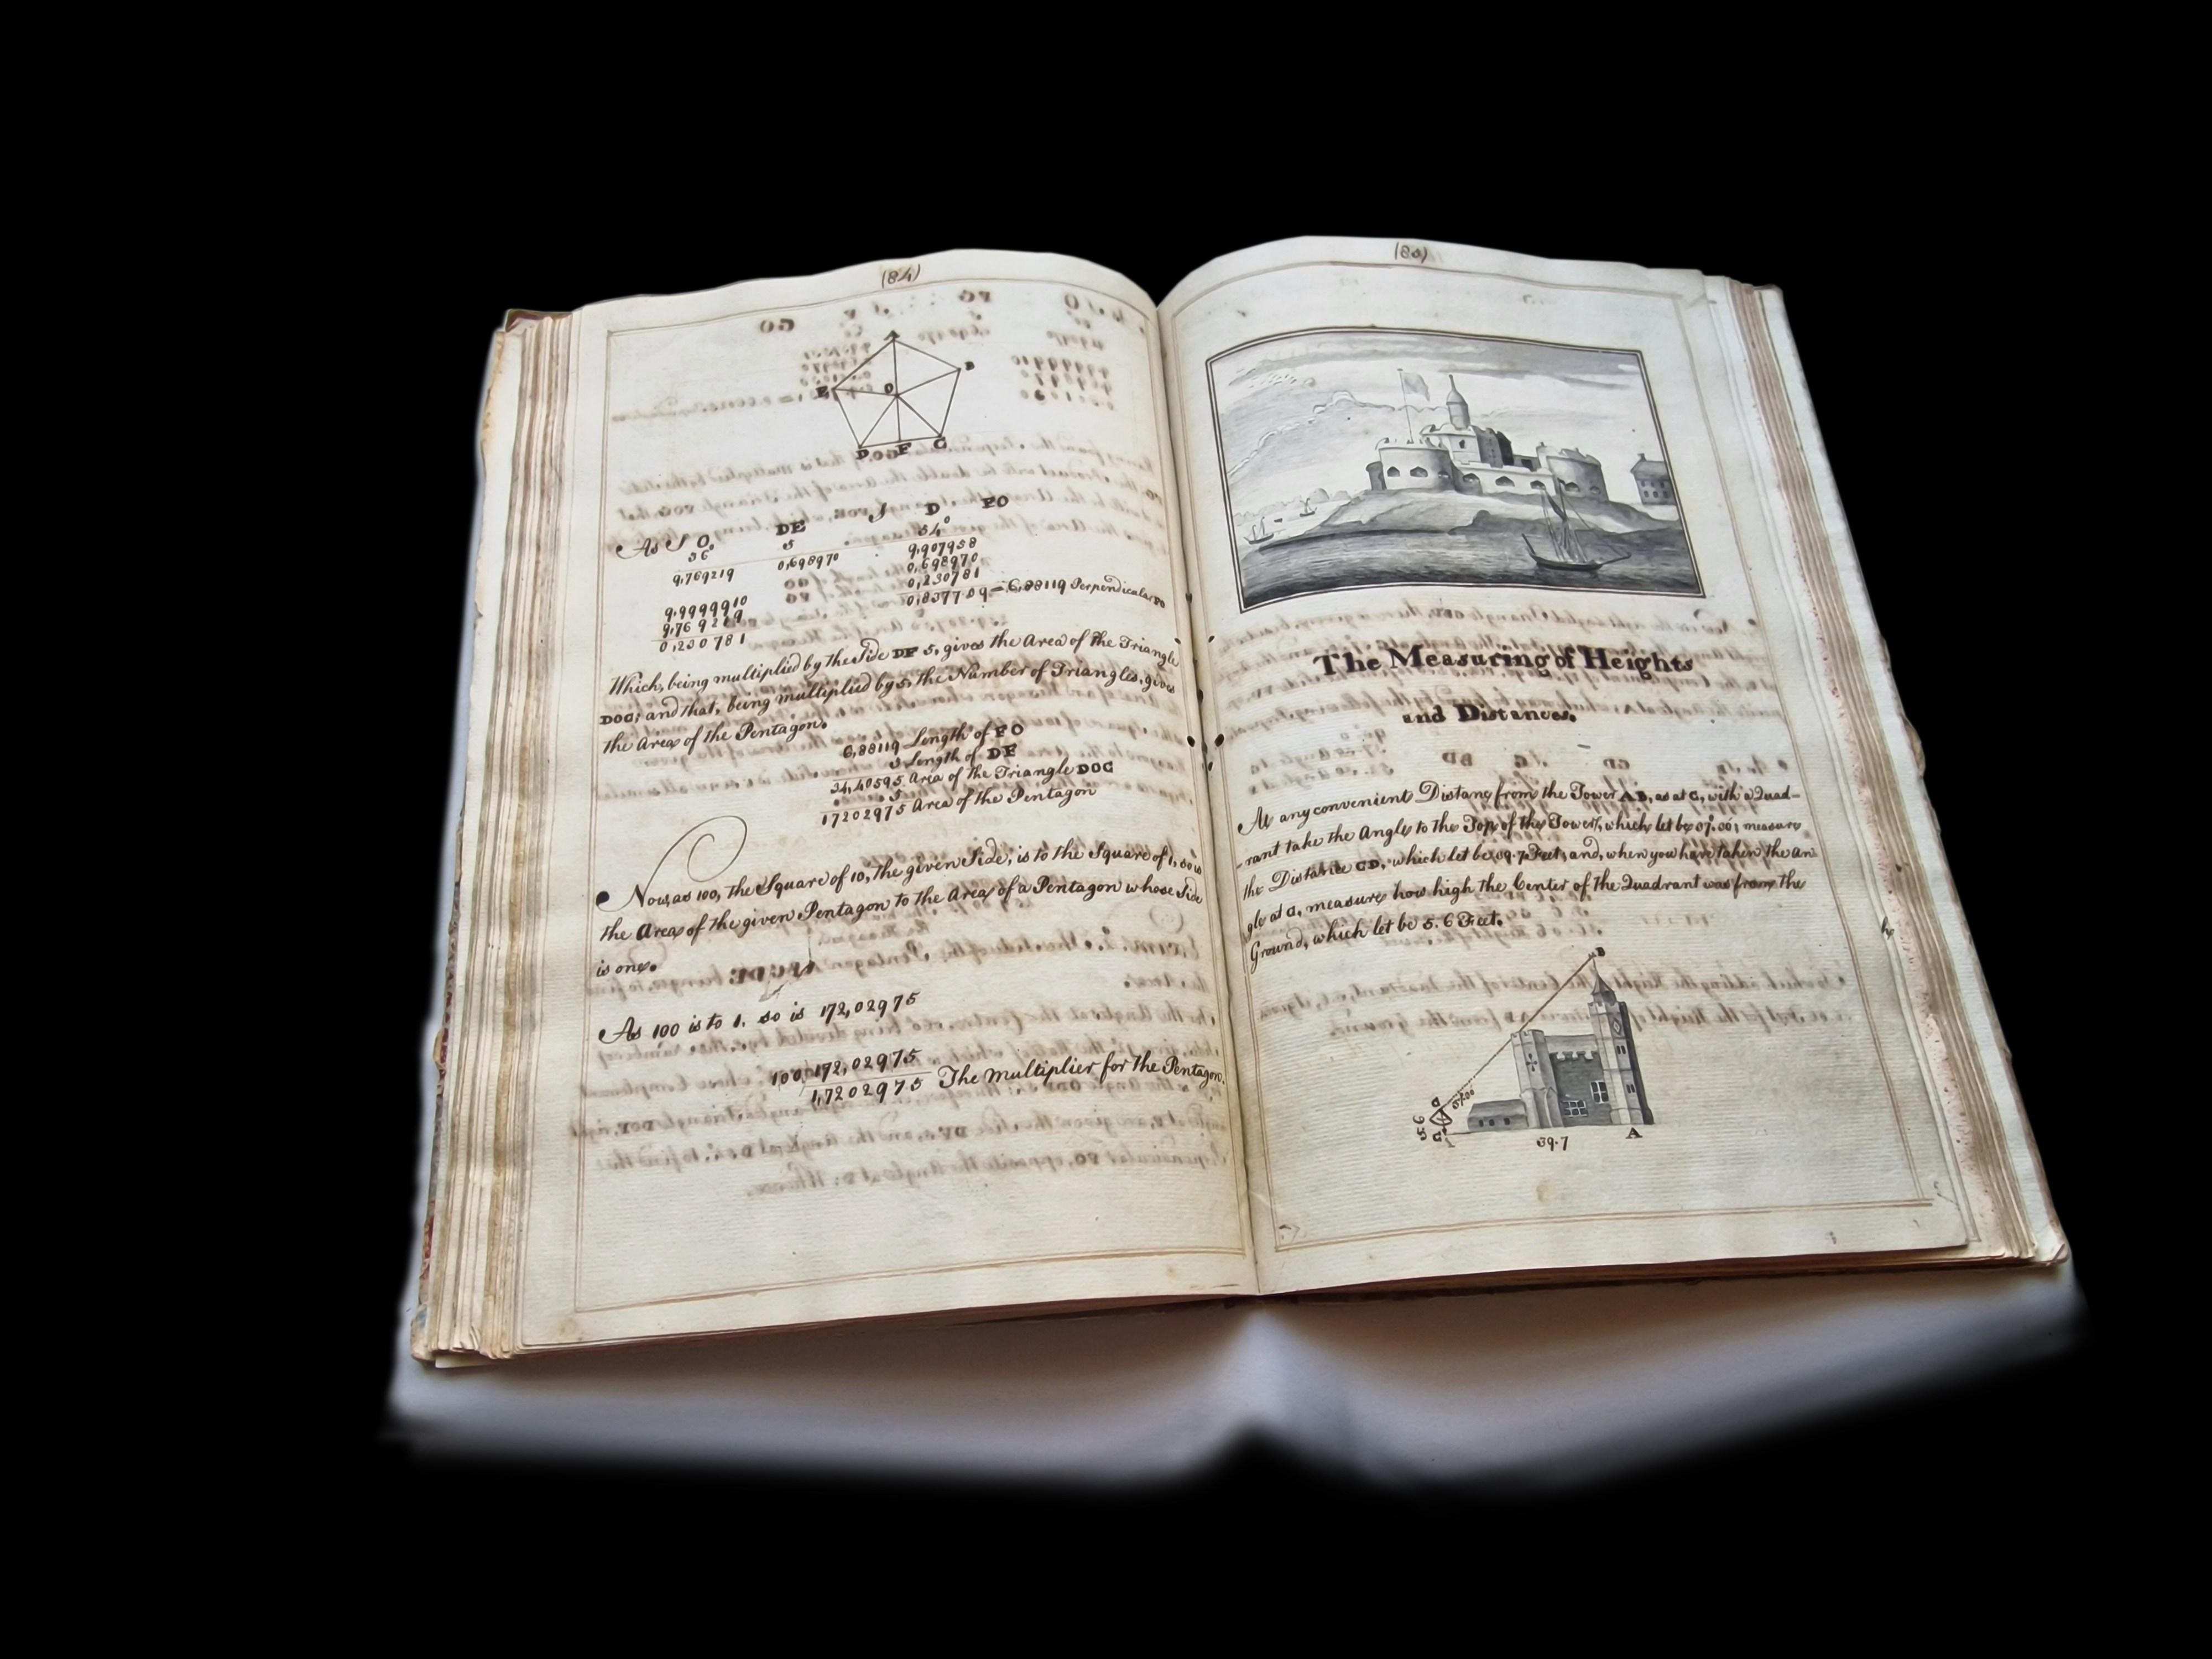 (84)
A
B
E
O
D
F
C
As S O.
DE
S
D
FO
36
5
54°
9,769219
0,698970
9,907958
0,698970
0,230781
0,837709=6,88119 Perpendicular FO
9,9999910
9,769219
0,230781
Which, being multiplied by the Side DF 5, gives the Area of the Triangle
DOC; and that, being multiplied by 5, the Number of Triangles, gives
the Area of the Pentagon.
6,88119 Length of FO
5 Length of DF
34,40595 Area of the Triangle DOC
5
17202975 Area of the Pentagon
Now, as 100, the Square of 10, the given Side, is to the Square of 1, so is
the Area of the given Pentagon to the Area of a Pentagon whose Side
is one.
As 100 is to 1. so is 172,02975
100)172,02975
1,7202975 The Multiplier for the Pentagon.
The Measuring of Heights
and Distances.
At any convenient Distanc from the Tower AB, as at C, with a Quad-
-rant take the Angle to the Top of the Tower, which let be measure
the Distance CD, which let be Feet; and, when you have taken the An
gle at C, measure how high the Center of the Quadrant was from the
Ground, which let be 5.6 Feet.
B
5 6
C
39.7
A